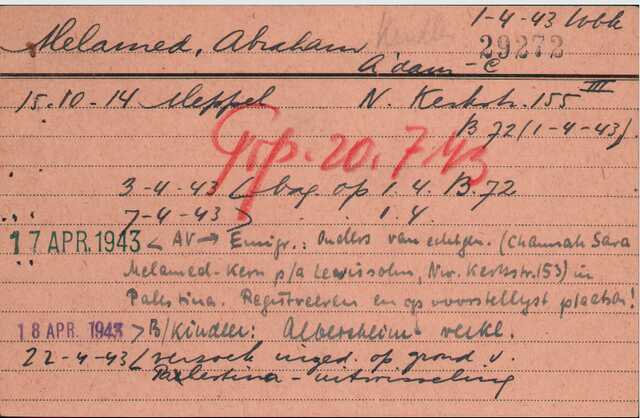 1-4-43 Wbk
Melamed, Abraham Kindler 29272
A'dam-C
15.10-14 Meppel N. Kerkstr. 155 III
B.72 (1-4-43)
Grp. 20.7.43
3-4-43 (bag. op 1.4. B.72
7-4-43 1.4.
17 APR. 1943 < AV → Emigr.: Ouders van echtgen. (Channah Sara
Melamed-Kern p/a Lewissohn, Nw. Kerkstr. 153) in
Palestina. Registreeren en op voorstellijst plaatsen!
18 APR. 1943 > B/Kindler: Albersheim verkl.
22-4-43 (verzoek inged. op grond v.
Palestina-uitwisseling